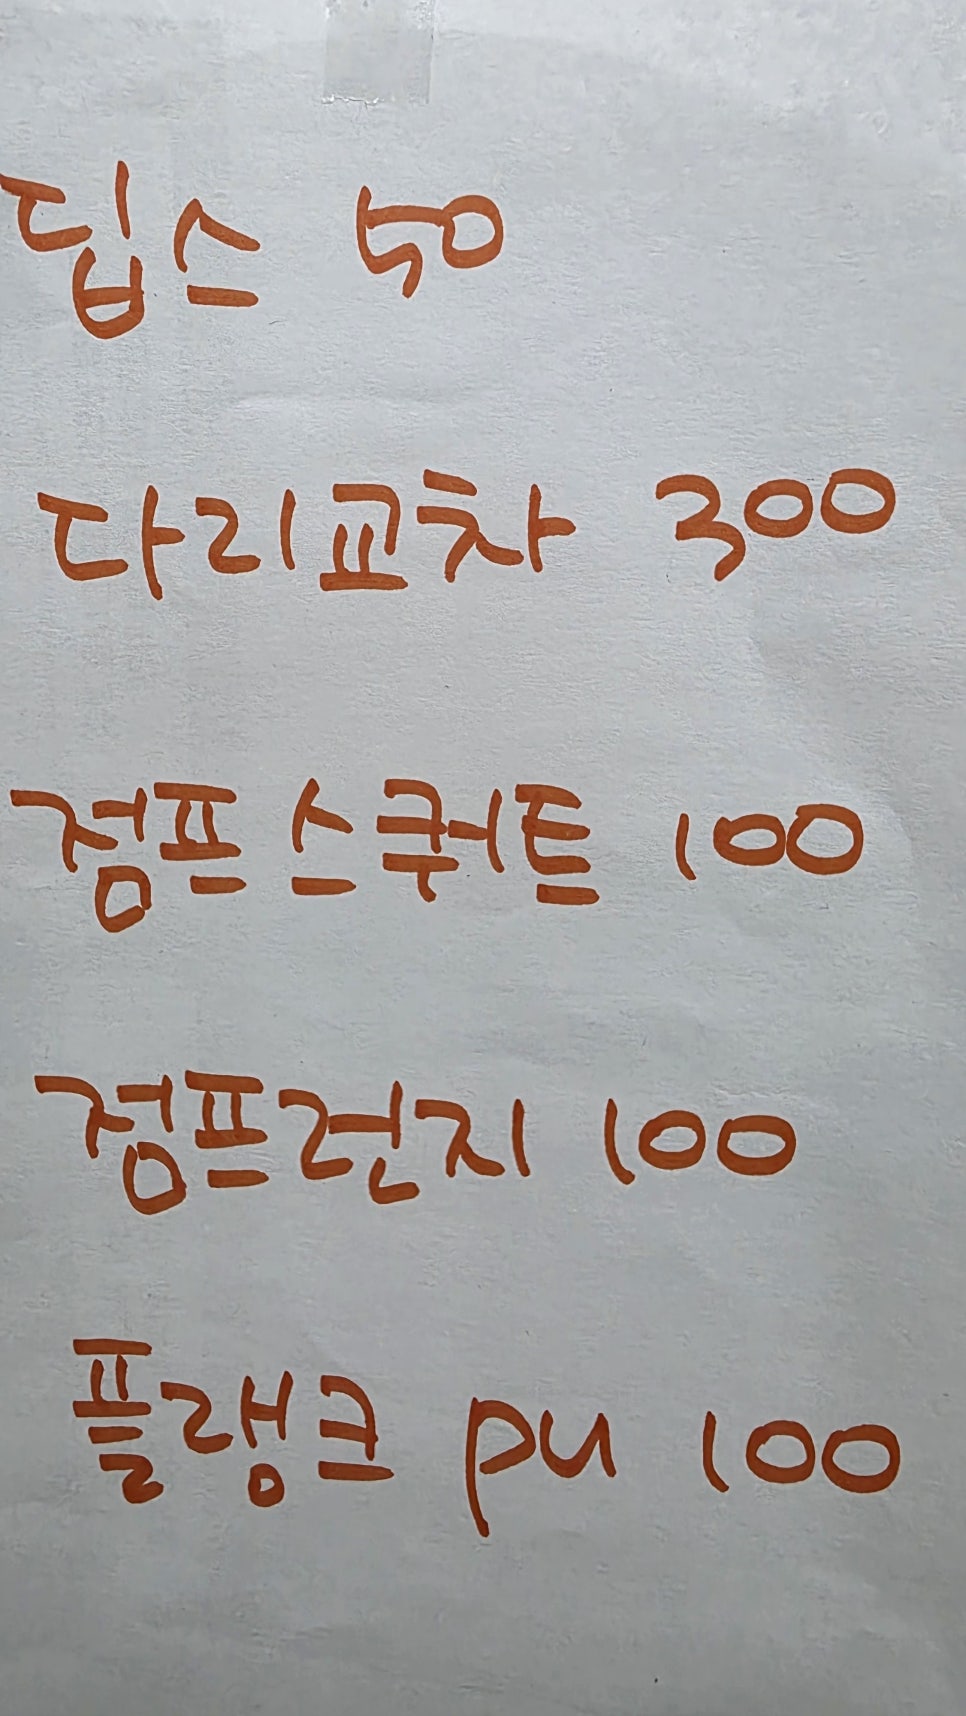 딥스 50
다리교차 300
점프스쿼트 100
점프런지 100
플랭크 pu 100